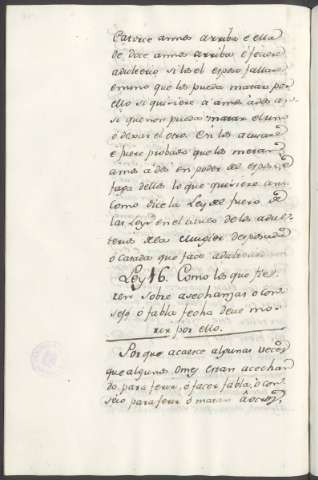 Catorce annos arriba e ella
de doce annos arriba, è ficiere
adulterio si les el esposo fallare
en uno que los pueda matar por
ello si quisiere a amos ados asi
si que non pueda matar el uno
ò dexar el otro. E si los acusare
e fuere probado que los metan
amos a dos en poder del esposo, e
faga dellos lo que quisiere ansi
como dice la Ley del fuero de
las Leyes en el titulo de los adul-
terios dela muger desposada
ò casada que face adulterio
Ley 16. Como los que fie-
ren sobre asechanzas ò con-
sejo ò fabla fecha deve mo-
rir por ello.
Porque acaesce algunas veces
que algunos omes estan acechan
do, para ferir, ò facer fabla, ò con
sejo para ferir ò matar à otros,